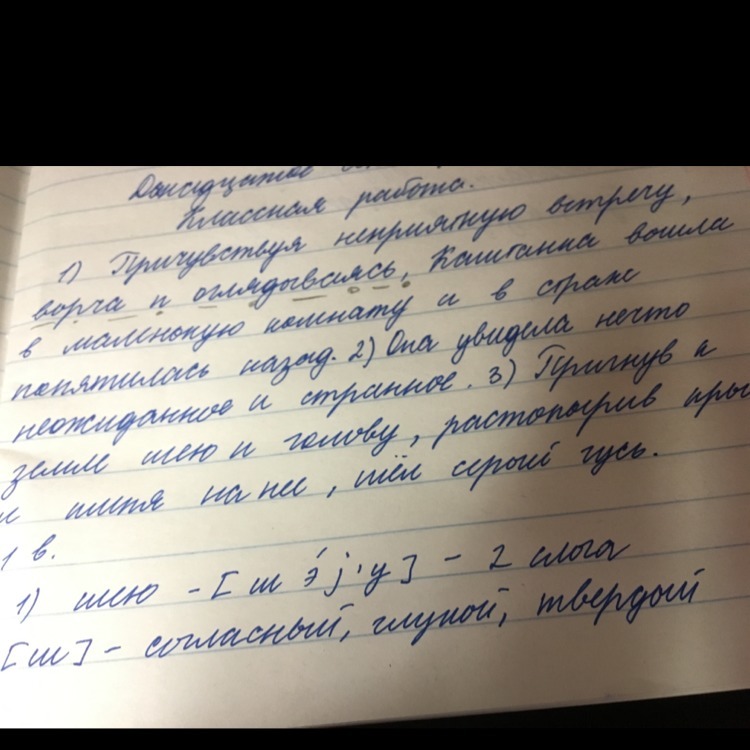 Двадцатое
Классная работа.
1) Причувствуя неприятную встречу,
ворча и оглядываясь, Каштанка вошла
в маленькую комнату и в страхе
попятилась назад. 2) Она увидела нечто
неожиданное и странное. 3) Пригнув к
земле шею и голову, растопырив кры
и шипя на нее, шёл серый гусь.
1 в.
1) шею - [ш э́ j' у] - 2 слога
[ш] - согласный, глухой, твердый